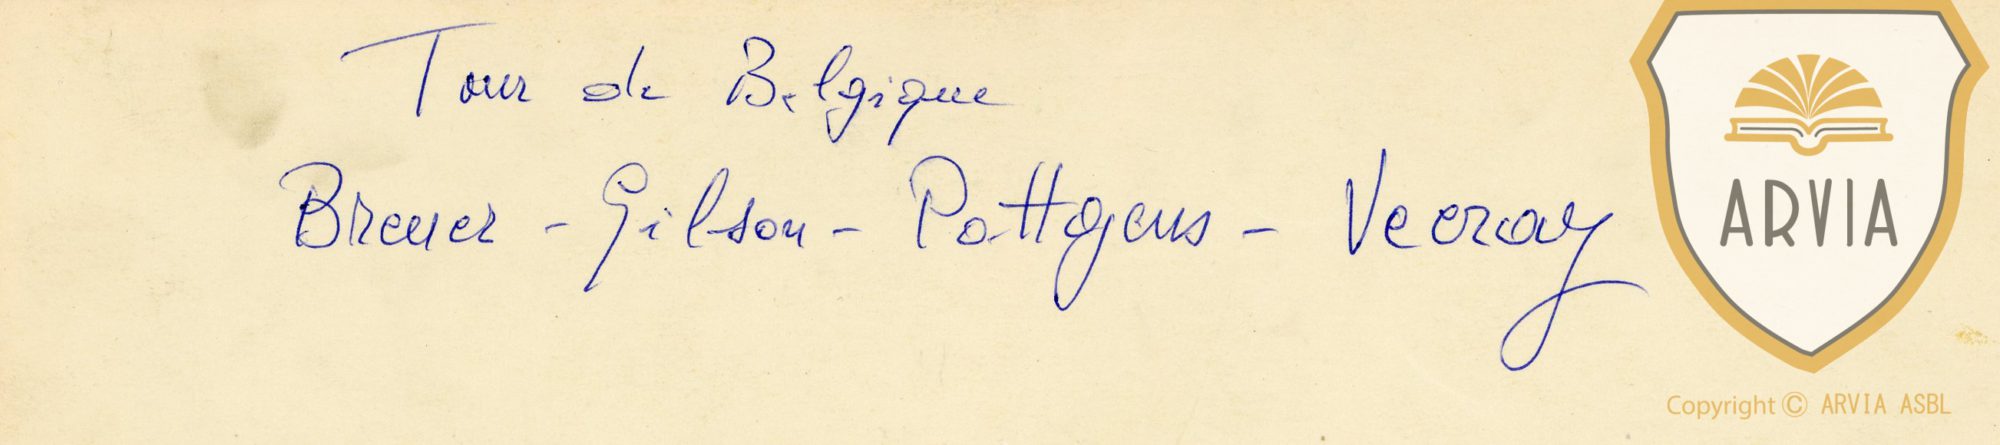 Tour de Belgique
Breuer - Gilson - Pottgens - Vecray
ARVIA
Copyright © ARVIA ASBL